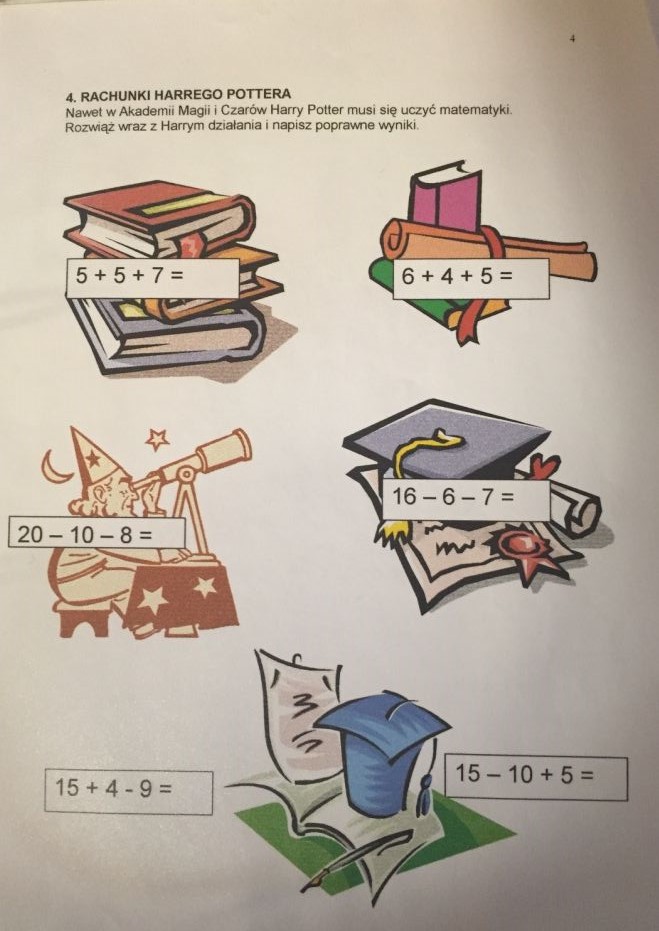 4
4. RACHUNKI HARREGO POTTERA
Nawet w Akademii Magii i Czarów Harry Potter musi się uczyć matematyki.
Rozwiąż wraz z Harrym działania i napisz poprawne wyniki.
5 + 5 + 7 =
6 + 4 + 5 =
20 – 10 – 8 =
16 – 6 – 7 =
15 + 4 - 9 =
15 – 10 + 5 =